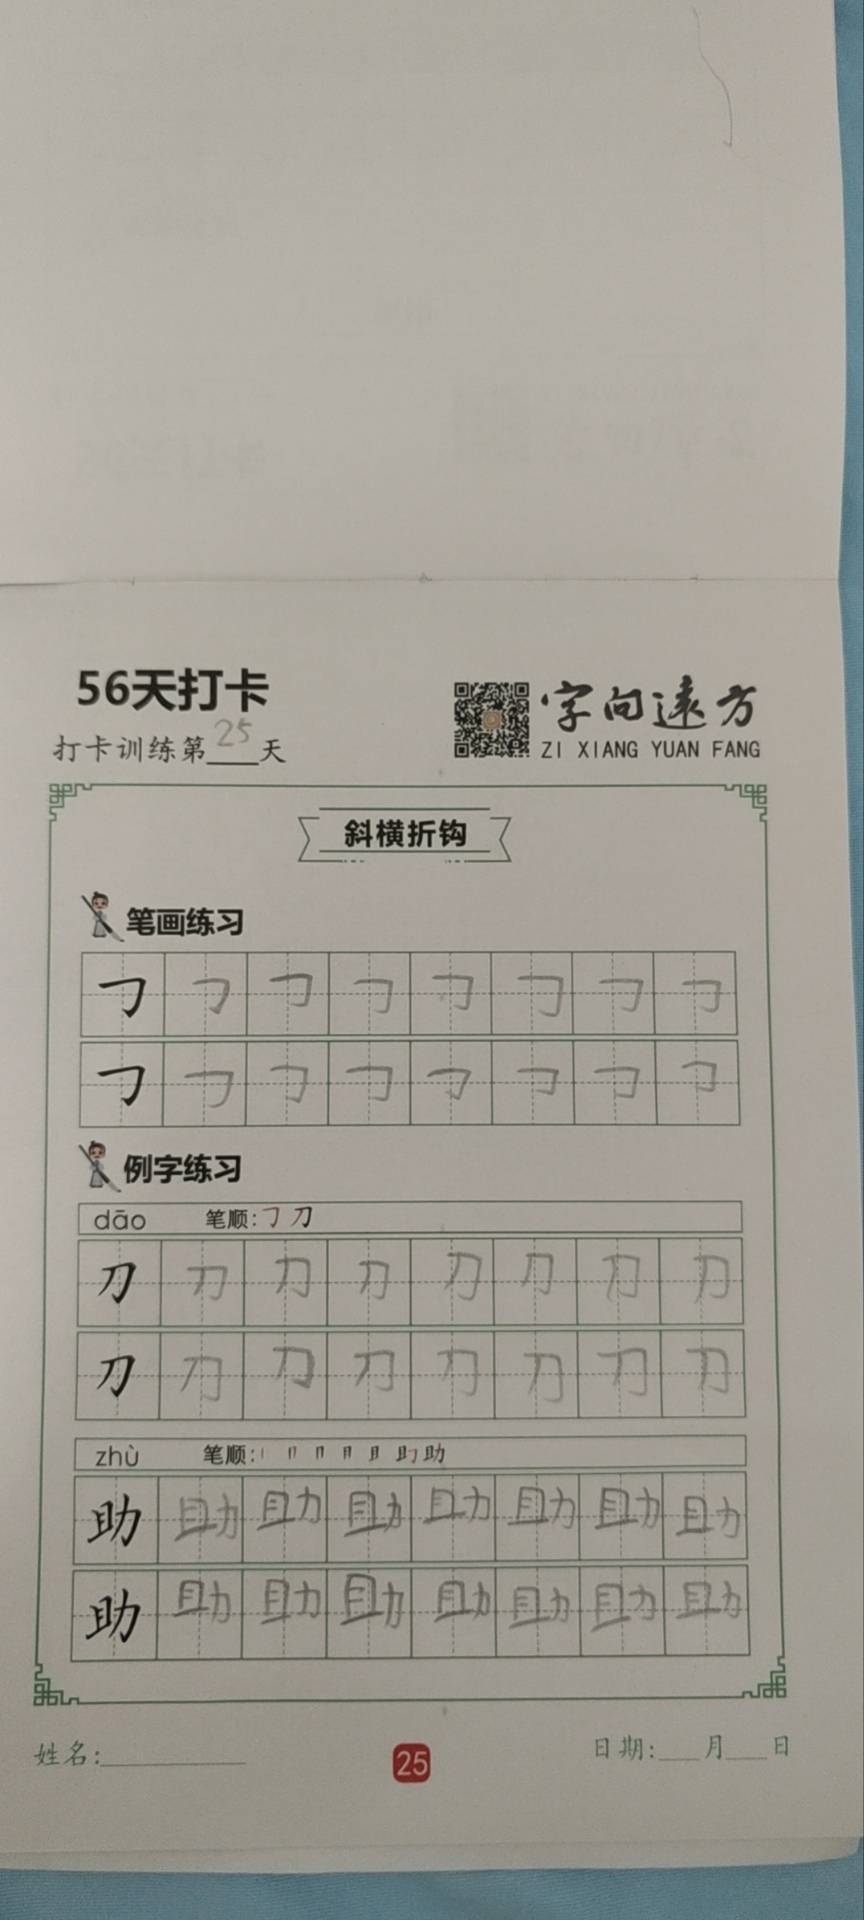 56天打卡
字向遠方
打卡训练第25天
ZI XIANG YUAN FANG
斜横折钩
笔画练习
㇆ ㇆ ㇆ ㇆ ㇆ ㇆ ㇆ ㇆
㇆ ㇆ ㇆ ㇆ ㇆ ㇆ ㇆ ㇆
例字练习
dāo 笔顺:㇆刀
刀 刀 刀 刀 刀 刀 刀 刀
刀 刀 刀 刀 刀 刀 刀 刀
zhù 笔顺: 助
助 助 助 助 助 助 助 助
助 助 助 助 助 助 助 助
姓名:
25
日期: 月 日